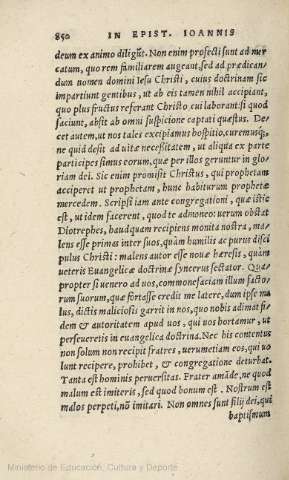 850 IN EPIST. IOANNIS
deum ex animo diligūt. Non enim profecti sunt ad mer
catum, quo rem familiarem augeant, sed ad prædican/
dum nomen domini Iesu Christi, cuius doctrinam sic
impartiunt gentibus, ut ab eis tamen nihil accipiant,
quo plus fructus referant Christo, cui laborant: si quod
faciunt, absit ab omni suspicione captati quæstus. De/
cet autem, ut nos tales excipiamus hospitio, curemusq;,
ne quid desit ad uitæ necessitatem, ut aliqua ex parte
participes simus eorum, quæ per illos geruntur in glo/
riam dei. Sic enim promisit Christus, qui prophetam
acciperet ut prophetam, hunc habiturum prophetæ
mercedem. Scripsi iam ante congregationi, quæ istic
est, ut idem facerent, quod te admoneo: uerum obstat
Diotrephes, haudquaquam recipiens monita nostra, ma/
lens esse primas inter suos, quàm humilis ac purus disci
pulus Christi: malens autor esse nouæ hæresis, quàm
ueteris Euangelicæ doctrinæ syncerus sectator. Qua/
propter si uenero ad uos, commonefaciam illum facto/
rum suorum, quæ fortasse credit me latere, dum ipse ma
lus, dictis maliciosis garrit in nos, quo nobis adimat fi/
dem & autoritatem apud uos, qui uos hortamur, ut
perseueretis in euangelica doctrina. Nec his contentus
non solum non recipit fratres, uerumetiam eos, qui uo
lunt recipere, prohibet, & congregatione deturbat.
Tanta est hominis peruersitas. Frater amāde, ne quod
malum est imiteris, sed quod bonum est. Nostrum est
malos perpeti, nō imitari. Non omnes sunt filij dei, qui
baptismum
Ministerio de Educación, Cultura y Deporte